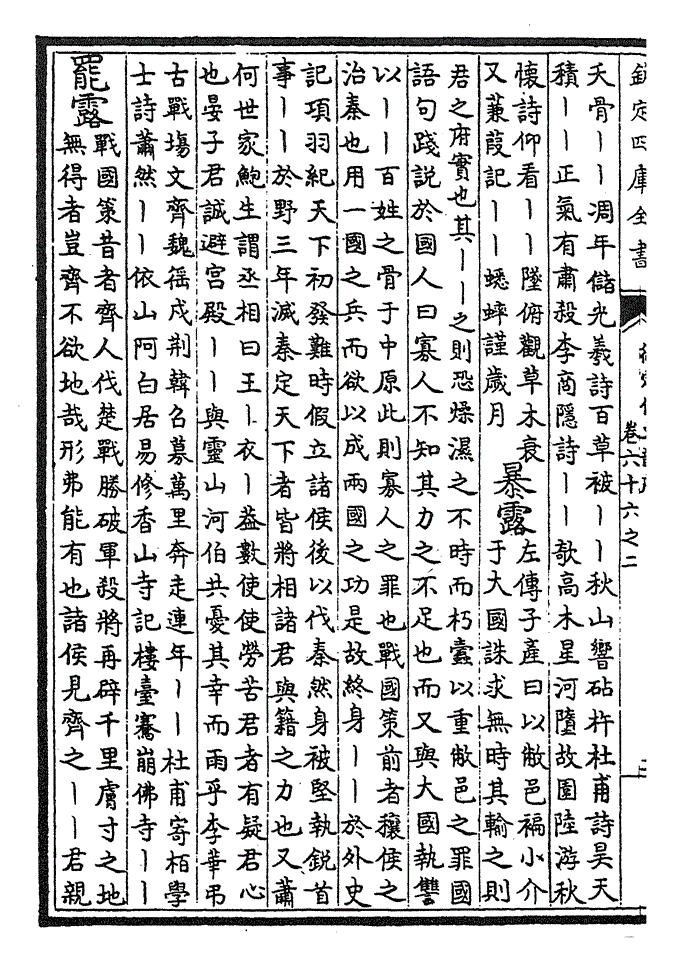 欽定四庫全書
卷六十六之二
夭骨丨丨凋年儲光羲詩百草被丨丨秋山響砧杵杜甫詩昊天
積丨丨正氣有肅殺李商隱詩丨丨欹高木星河墮故園陸游秋
懷詩仰看丨丨墜俯觀草木衰
又蒹葭記丨丨蟋蟀謹歲月
暴露
左傳子產曰以敝邑褊小介
于大國誅求無時其輸之則
君之府實也其丨丨之則恐燥濕之不時而朽蠹以重敝邑之罪國
語句踐説於國人曰寡人不知其力之不足也而又與大國執讐
以丨丨百姓之骨于中原此則寡人之罪也戰國策前者穰侯之
治秦也用一國之兵而欲以成兩國之功是故終身丨丨於外史
記項羽紀天下初發難時假立諸侯後以伐秦然身被堅執鋭首
事丨丨於野三年滅秦定天下者皆將相諸君與籍之力也又蕭
何世家鮑生謂丞相曰王丨衣丨葢數使使勞苦君者有疑君心
也晏子君誠避宫殿丨丨與靈山河伯共憂其幸而雨乎李華弔
古戰塲文齊魏徭戍荆韓召募萬里奔走連年丨丨杜甫寄栢學
士詩蕭然丨丨依山阿白居易修香山寺記樓臺騫崩佛寺丨丨
罷露
戰國策昔者齊人伐楚戰勝破軍殺將再辟千里膚寸之地
無得者豈齊不欲地哉形弗能有也諸侯見齊之丨丨君親